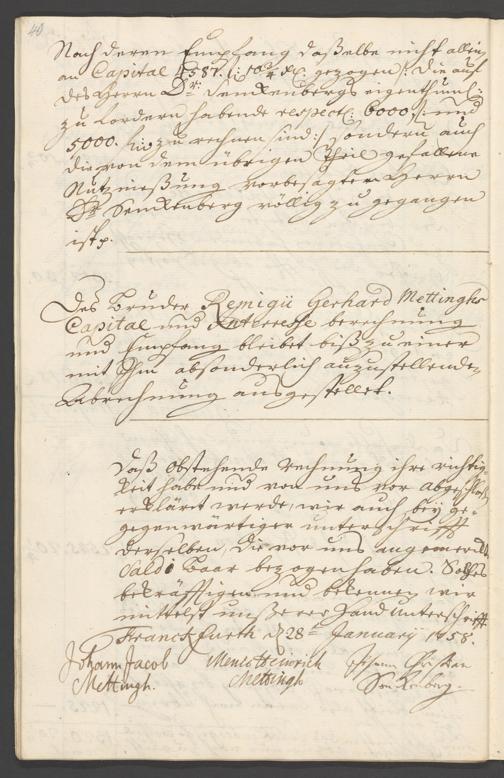 40
Nach deren Empfang daßelbe nicht allein,
an Capital f587. gezogen |: die auf
des Herrn Dr. Senckenbergs eigenthuml:
zu fordern habende respect: 6000 f: und
5000. zu rechnen sind :| sondern auch
die von dem übrigen Theil gefallene
Nutznießung vorbesagtem Herrn
Dr Senckenberg völlig zu gegangen
ist p.
Des Bruder Remigii Gerhard Mettinghs
Capital und Interesse berechnung
und Empfang bleibet biß zu einer
mit Ihm absonderlich anzustellenden
Abrechnung ausgestellet.
Daß Obstehende rechnung ihre richtig-
keit habe und von uns vor abgeschloßen
erkläret werde, wir auch bey ge-
gegenwärtiger unterschrifft
derselben, die vor uns angemerckte
Saldi baar bezogen haben. Solches
bekräfftigen und bekennen wir
mittelst unßerer Hand Unterschrifft
Franckfurth d 28ten January 1758.
Johann Jacob
Mettingh.
Menco Heinrich
Mettingh
Johann Christian
Senckenberg.